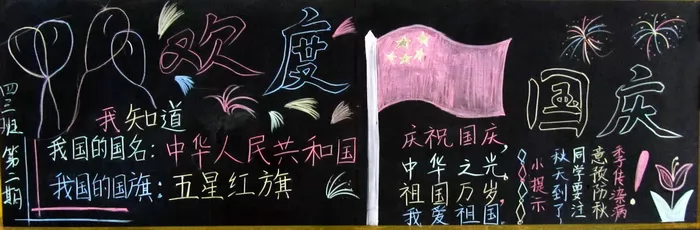 欢度
国庆
四三班第二期
我知道
我国的国名：中华人民共和国
我国的国旗：五星红旗
庆祝国庆，
中华之光。
祖国万岁，
我爱祖国。
小提示
秋天到了
同学要注
意预防秋
季传染病！